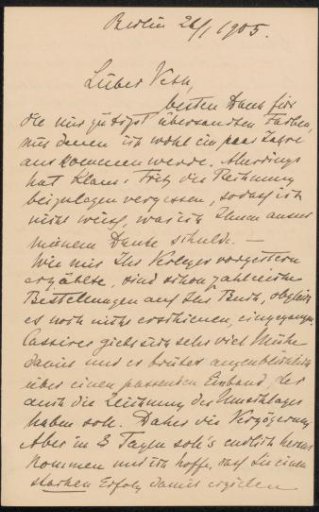 Berlin 26/1 1905.
Lieber Veth,
besten Dank für
die mir gütigst übersandten Farben,
mit denen ich wohl ein paar Jahre
auskommen werde. Allerdings
hat Klaus & Fritz die Rechnung
beizulegen vergessen, sodass ich
nicht weiss, was ich Ihnen ausser
meinem Danke schulde. —
Wie mir Ihr Verleger vorgestern
erzählte, sind schon zahlreiche
Bestellungen auf Ihr Buch, obgleich
es noch nicht erschienen, eingegangen.
Cassirer giebt sich sehr viel Mühe
damit und er brütet augenblicklich
über einen passenden Einband, der
auch die Zeichnung des Umschlages
haben soll. Daher die Verzögerung
Aber in 3 Tagen soll's endlich heraus
kommen und ich hoffe, dass Sie einen
starken Erfolg damit erzielen